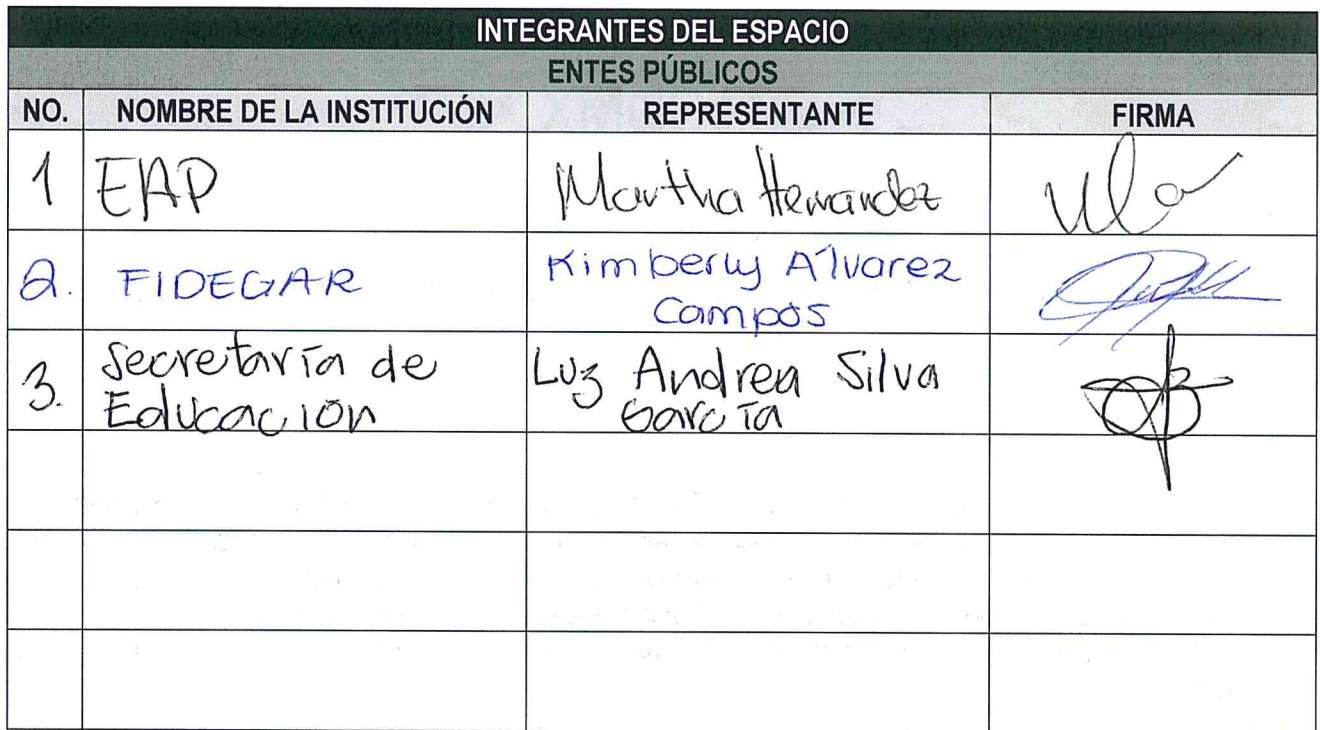 INTEGRANTES DEL ESPACIO
ENTES PÚBLICOS
NO. NOMBRE DE LA INSTITUCIÓN REPRESENTANTE FIRMA
1 EAP Martha Hernandez
2. FIDEGAR Kimberly Álvarez
Campos
3. Secretaría de Luz Andrea Silva
Educación García